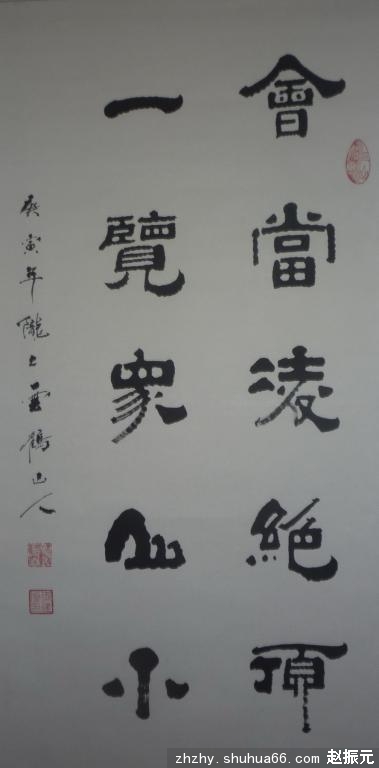 會當淩絕頂
一覽眾山小
庚寅年隴上雲鶴山人
zhzhy.shuhua66.com 赵振元